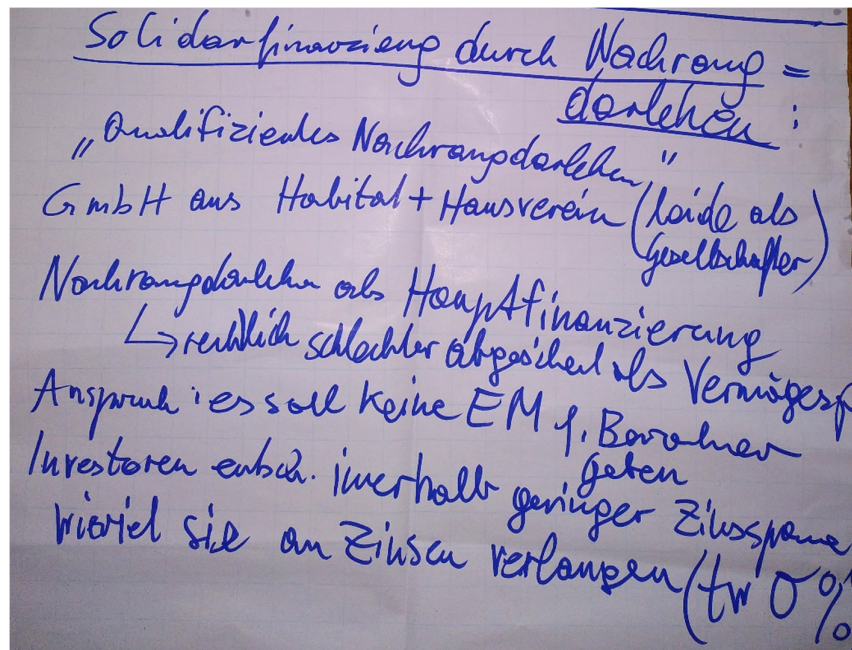 Solidarfinanzieng durch Nachrang=
darlehen:
„Qualifiziertes Nachrangdarlehen"
GmbH aus Habitat + Hausverein (beide als
Gesellschafter)
Nachrangdarlehen als Hauptfinanzierung
↳ rechtlich schlechter abgesichert als Vermögesp
Anspruch: es soll keine EM f. Bewohner
geben
Investoren entsch. innerhalb geringer Zinsspanne
wieviel sie an Zinsen verlangen (tw 0%